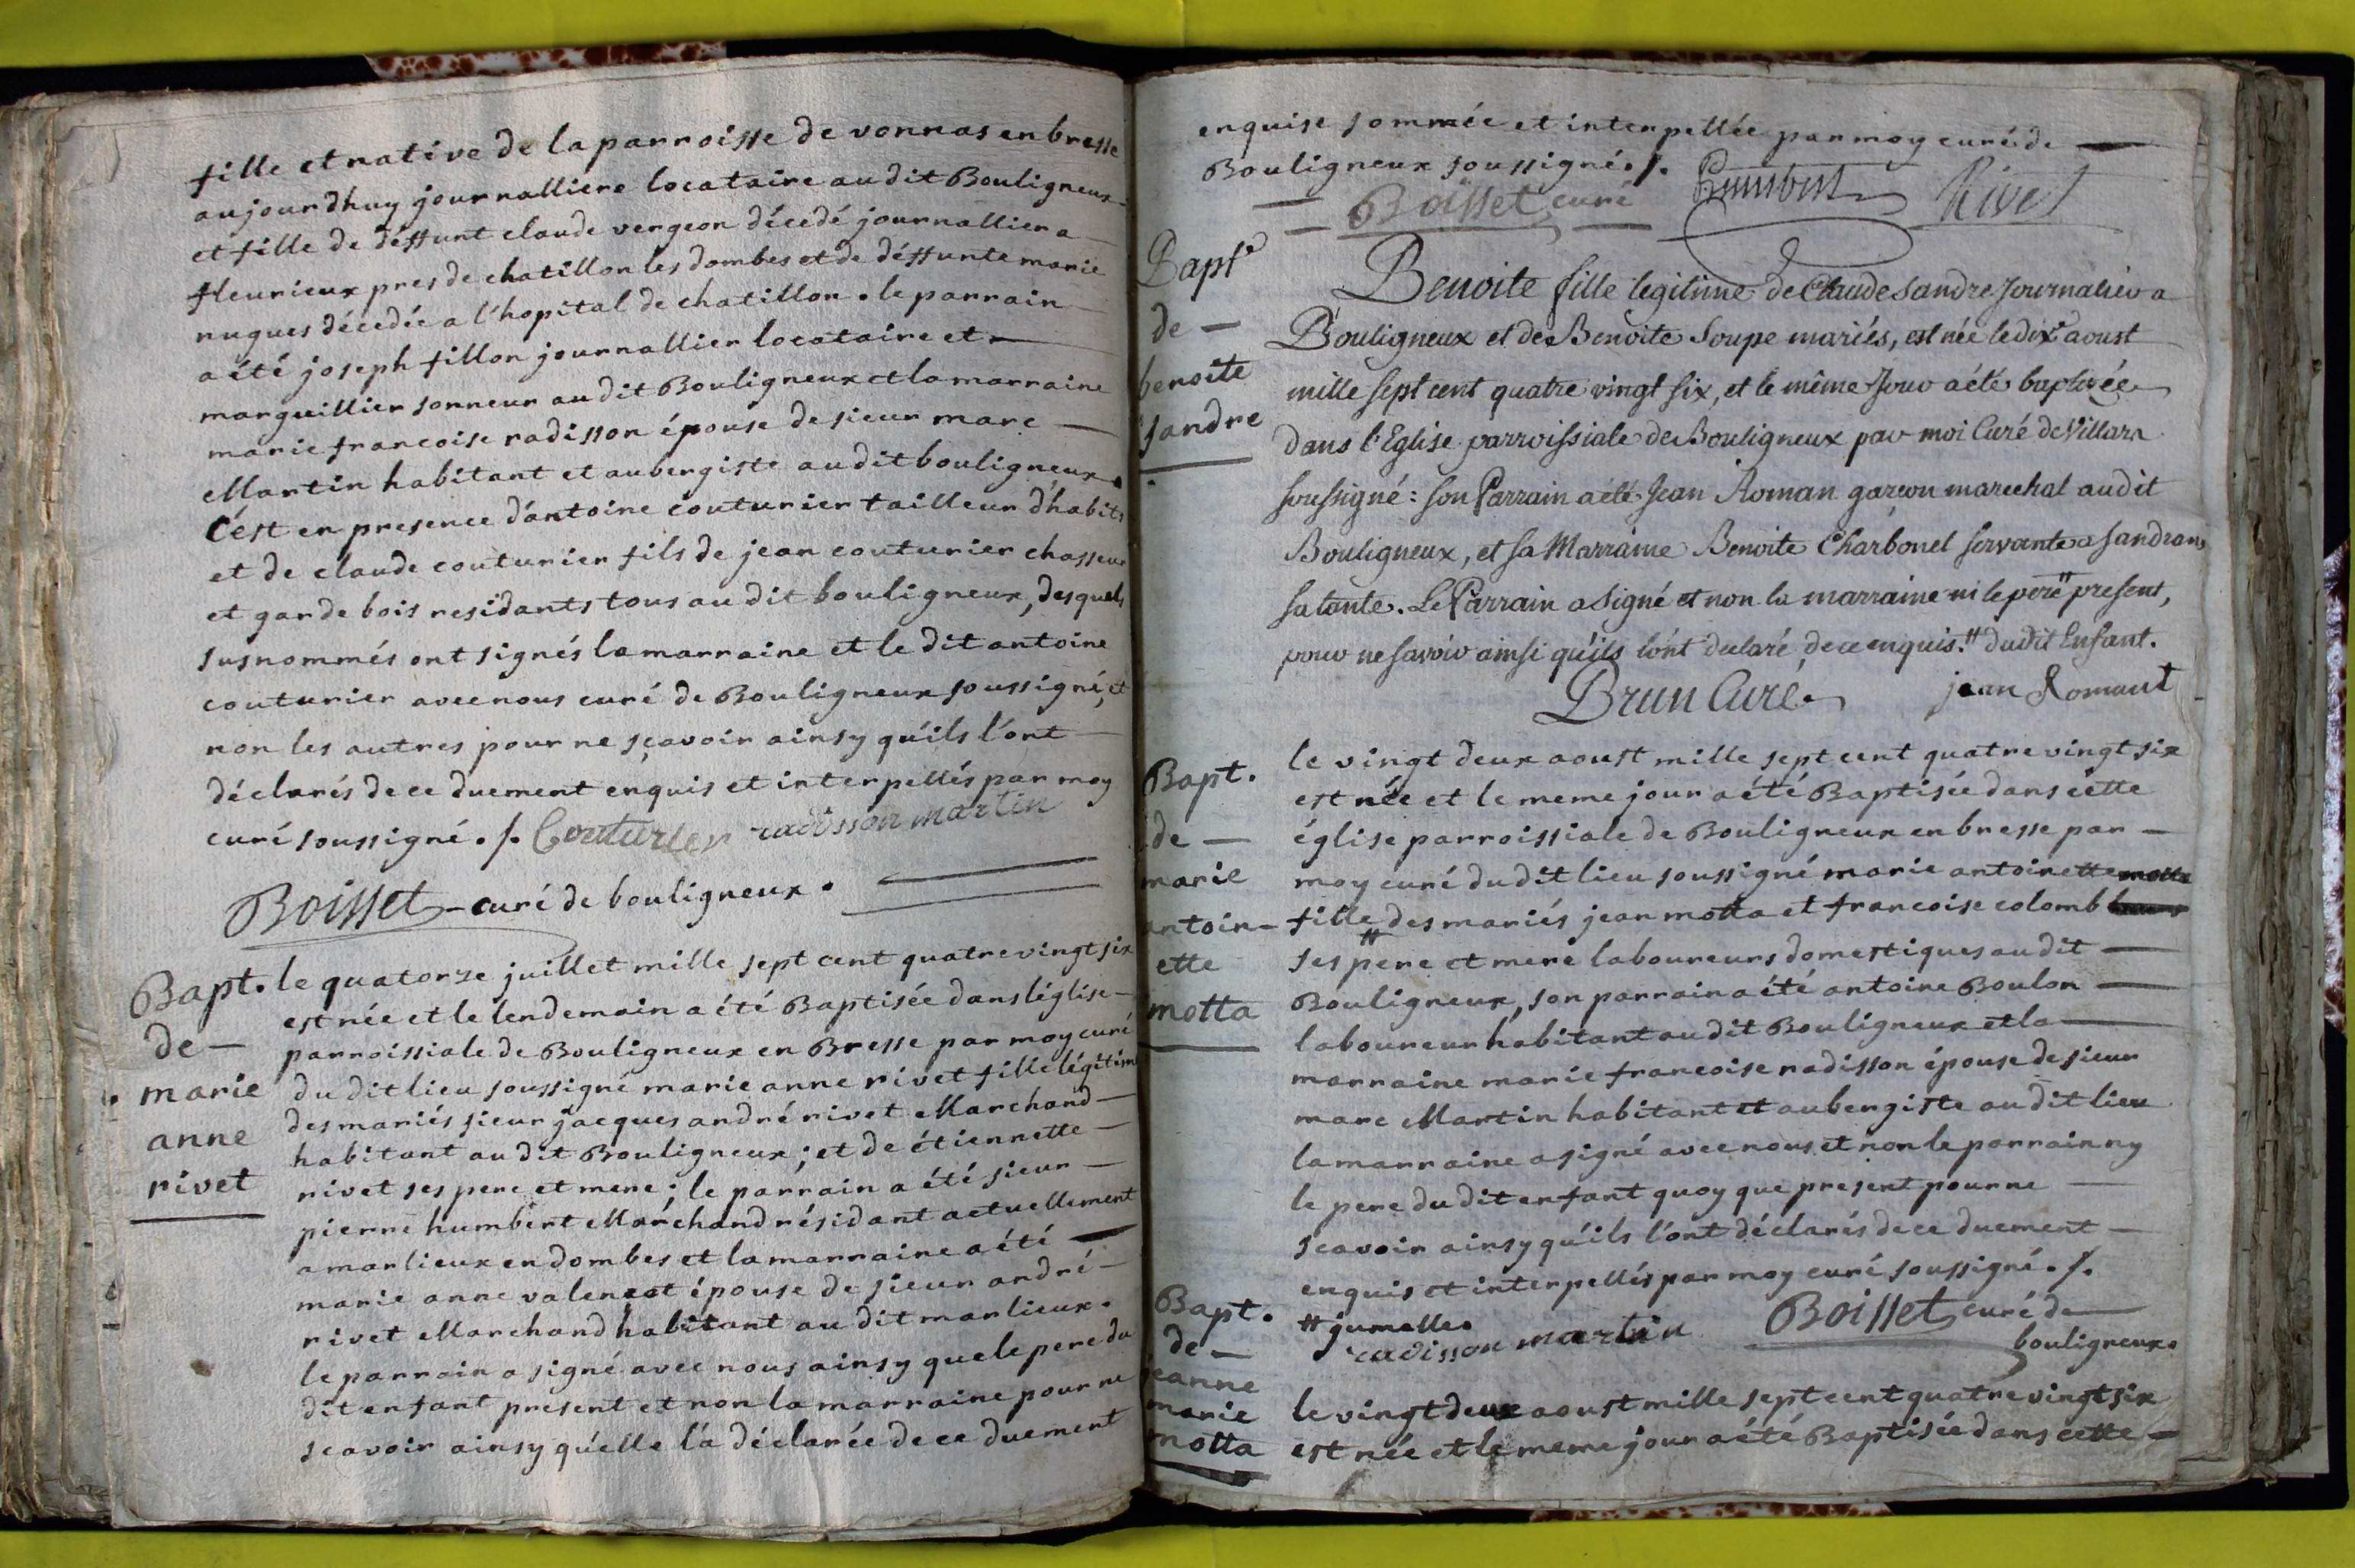 fille et native de la parroisse de vonnas en bresse
aujourdhuy journalliere locataire au dit Bouligneux
et fille de déffunt claude vergeon décedé journallier a
fleurieux pres de chatillon les dombes et de déffunte marie
nugues décedée a l'hopital de chatillon. le parrain
a été joseph fillon journallier locataire et
marguillier sonneur au dit Bouligneux et la marraine
marie francoise radisson épouse de sieur marc
Martin habitant et aubergiste au dit bouligneux.
C'est en presence d'antoine couturier tailleur d'habits
et de claude couturier fils de jean couturier chasseur
et garde bois residants tous au dit bouligneux, desquels
susnommés ont signés la marraine et le dit antoine
couturier avec nous curé de Bouligneux soussigné, et
non les autres pour ne sçavoir ainsy qu'ils l'ont
déclarés de ce duement enquis et interpellés par moy
curé soussigné ./. Couturier radisson martin
Boisset curé de bouligneux.
Bapt. de marie anne rivet
le quatorze juillet mille sept cent quatre vingt six
est née et le lendemain a été Baptisée dans l'église
parroissiale de Bouligneux en Bresse par moy curé
du dit lieu soussigné marie anne rivet fille légitime
des mariés sieur jacques andré rivet Marchand
habitant au dit Bouligneux; et de étiennette
rivet ses pere et mere; le parrain a été sieur
pierre humbert Marchand résidant actuellement
a marlieux en dombes et la marraine a été
marie anne valencot épouse de sieur andré
rivet Marchand habitant au dit marlieux.
le parrain a signé avec nous ainsy que le pere du
dit enfant present et non la marraine pour ne
scavoir ainsy qu'elle l'a déclarée de ce duement
enquise sommée et interpellée par moy curé de
Bouligneux soussigné ./.
Boisset curé humbert Rivet
Bapt.e de benoite sandre
Benoite fille legitime de Claude Sandre Journalier a
Bouligneux et de Benoite Soupe mariés, est née le dix aoust
mille sept cent quatre vingt six, et le même Jour a été baptisée
dans l'Eglise parroissiale de Bouligneux par moi Curé de Villars
soussigné: son Parrain a été Jean Roman garçon marechal audit
Bouligneux, et sa Marraine Benoite Charbonet servante a Sandrans
sa tante. Le Parrain a signé et non la marraine ni le pere # present,
pour ne savoir ainsi qu'ils l'ont declaré, de ce enquis. # dudit Enfant.
Brun Curé. jean Romant
Bapt. de marie antoin-ette motta
le vingt deux aoust mille sept cent quatre vingt six
est née et le meme jour a été Baptisée dans cette
église parroissiale de Bouligneux en bresse par
moy curé du dit lieu soussigné marie antoinette
fille # des mariés jean motta et francoise colomb
ses pere et mere laboureurs domestiques au dit
Bouligneux, son parrain a été antoine Boulon
laboureur habitant au dit Bouligneux et la
marraine marie francoise radisson épouse de sieur
marc Martin habitant et aubergiste au dit lieu
la marraine a signé avec nous et non le parrain ny
le pere du dit enfant quoy que present pour ne
scavoir ainsy qu'ils l'ont déclarés de ce duement
enquis et interpellés par moy curé soussigné ./.
# jumelle.
radisson martin Boisset curé de
bouligneux.
Bapt. de jeanne marie motta
le vingt deux aoust mille sept cent quatre vingt six
est née et le meme jour a été Baptisée dans cette